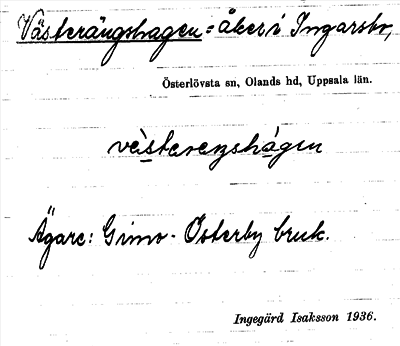 Västerängshagen = åker i Ingarsbo,
Österlövsta sn, Olands hd, Uppsala län.
Ägare: Gimo-Österby bruk.
Ingegärd Isaksson 1936.